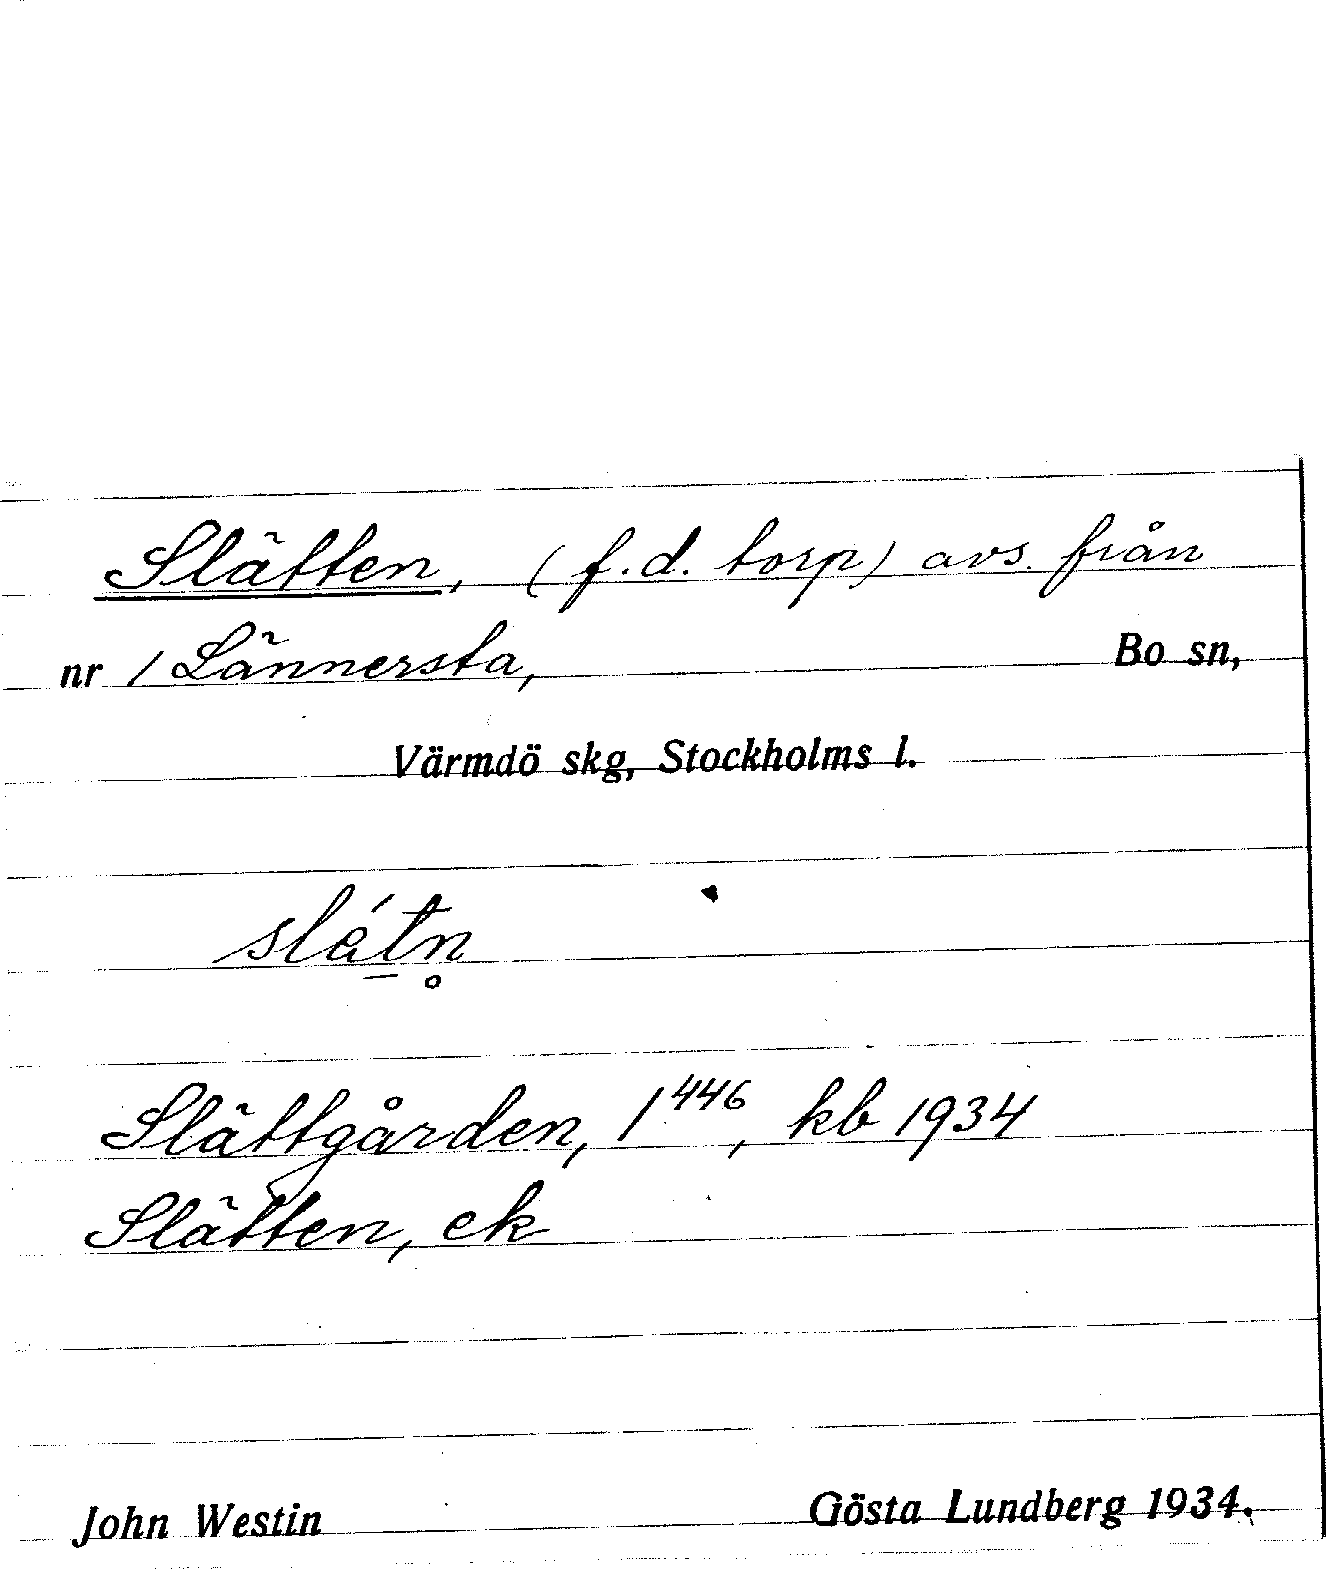 Slätten, (f.d. torp) avs. från
nr 1 Lännersta, Bo sn,
Värmdö skg, Stockholms l.
slát̲n̥
Slättgården, 1⁴⁴⁶, kb 1934
Slätten, ek
John Westin Gösta Lundberg 1934.